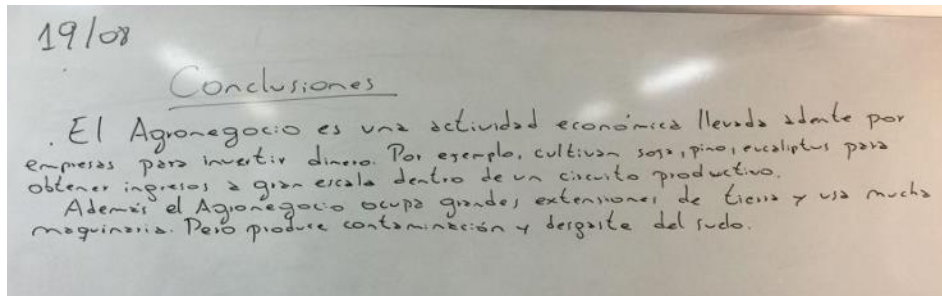 19/08
Conclusiones
. El Agronegocio es una actividad económica llevada adente por
empresas para invertir dinero. Por egemplo, cultivan soja, pino, eucaliptus para
obtener ingresos a gran escala dentro de un circuito productivo.
Además el Agronegocio ocupa grandes extensiones de tierra y usa mucha
maquinaria. Pero produce contaminación y desgaste del suelo.